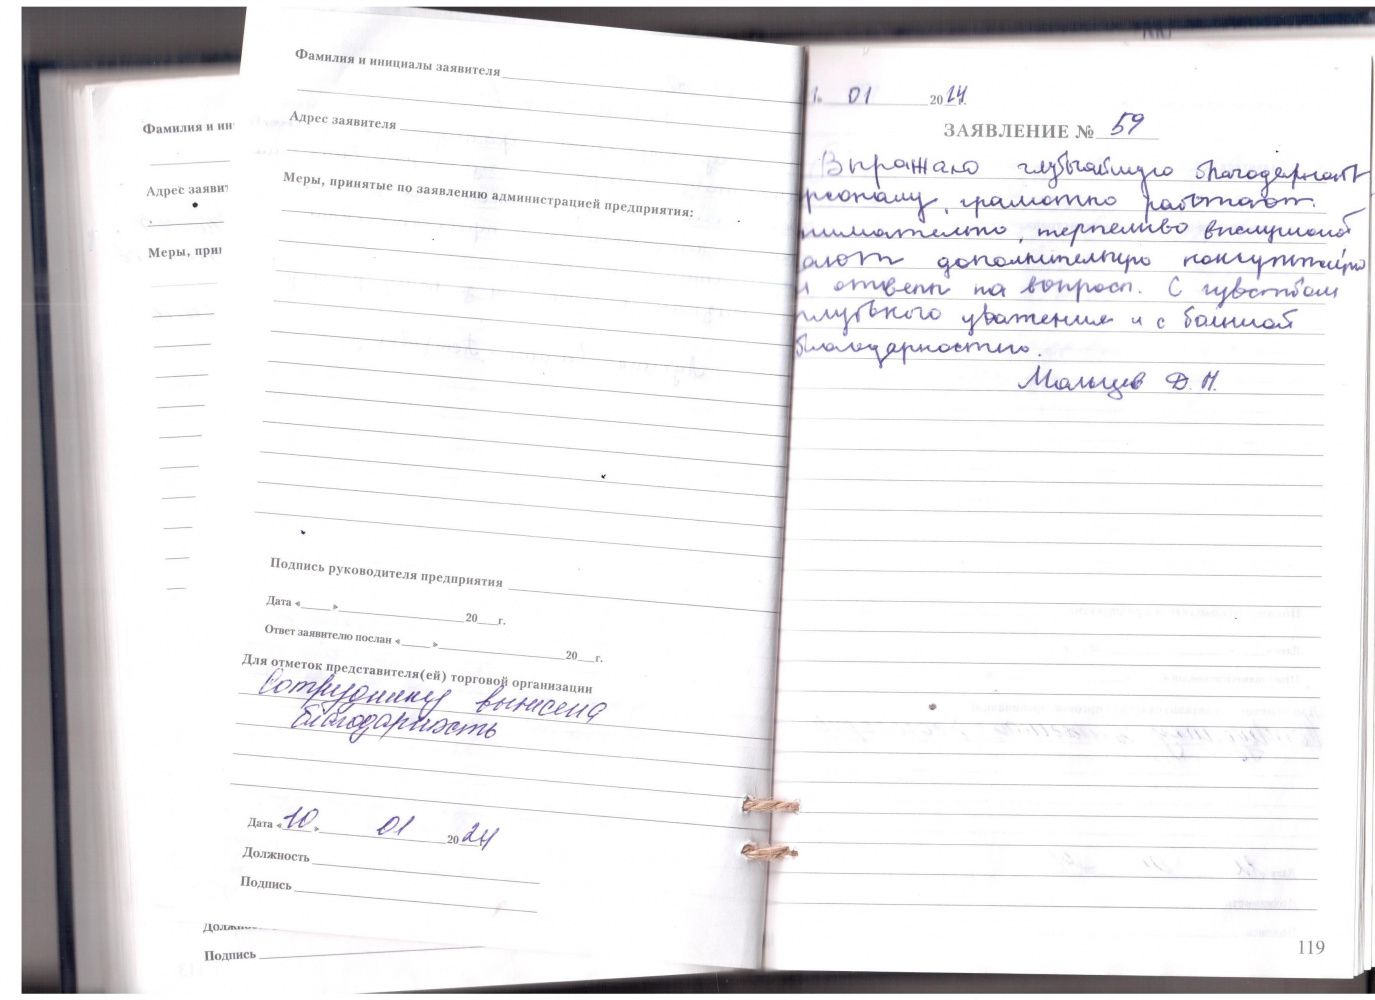 Фамилия и ин
Адрес заявит
Меры, прин
Подпись
Фамилия и инициалы заявителя
Адрес заявителя
Меры, принятые по заявлению администрацией предприятия:
Подпись руководителя предприятия
Дата «____»____ 20__г.
Ответ заявителю послан «____»____ 20__г.
Для отметок представителя(ей) торговой организации
Сотруднику вынесена
благодарность
Дата «10» 01 2024
Должность
Подпись
01 2024г.
ЗАЯВЛЕНИЕ № 59
Выражаю глубочайшую благодарность
рсоналу, грамотно работают.
нимательно, терпеливо
ают дополнительную консультацию
и ответы на вопросы. С чувством
глубокого уважения и с большой
благодарностью.
Мальцев Д. Н.
119